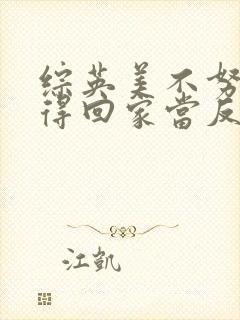 综英美不努
得回家当反
江凯